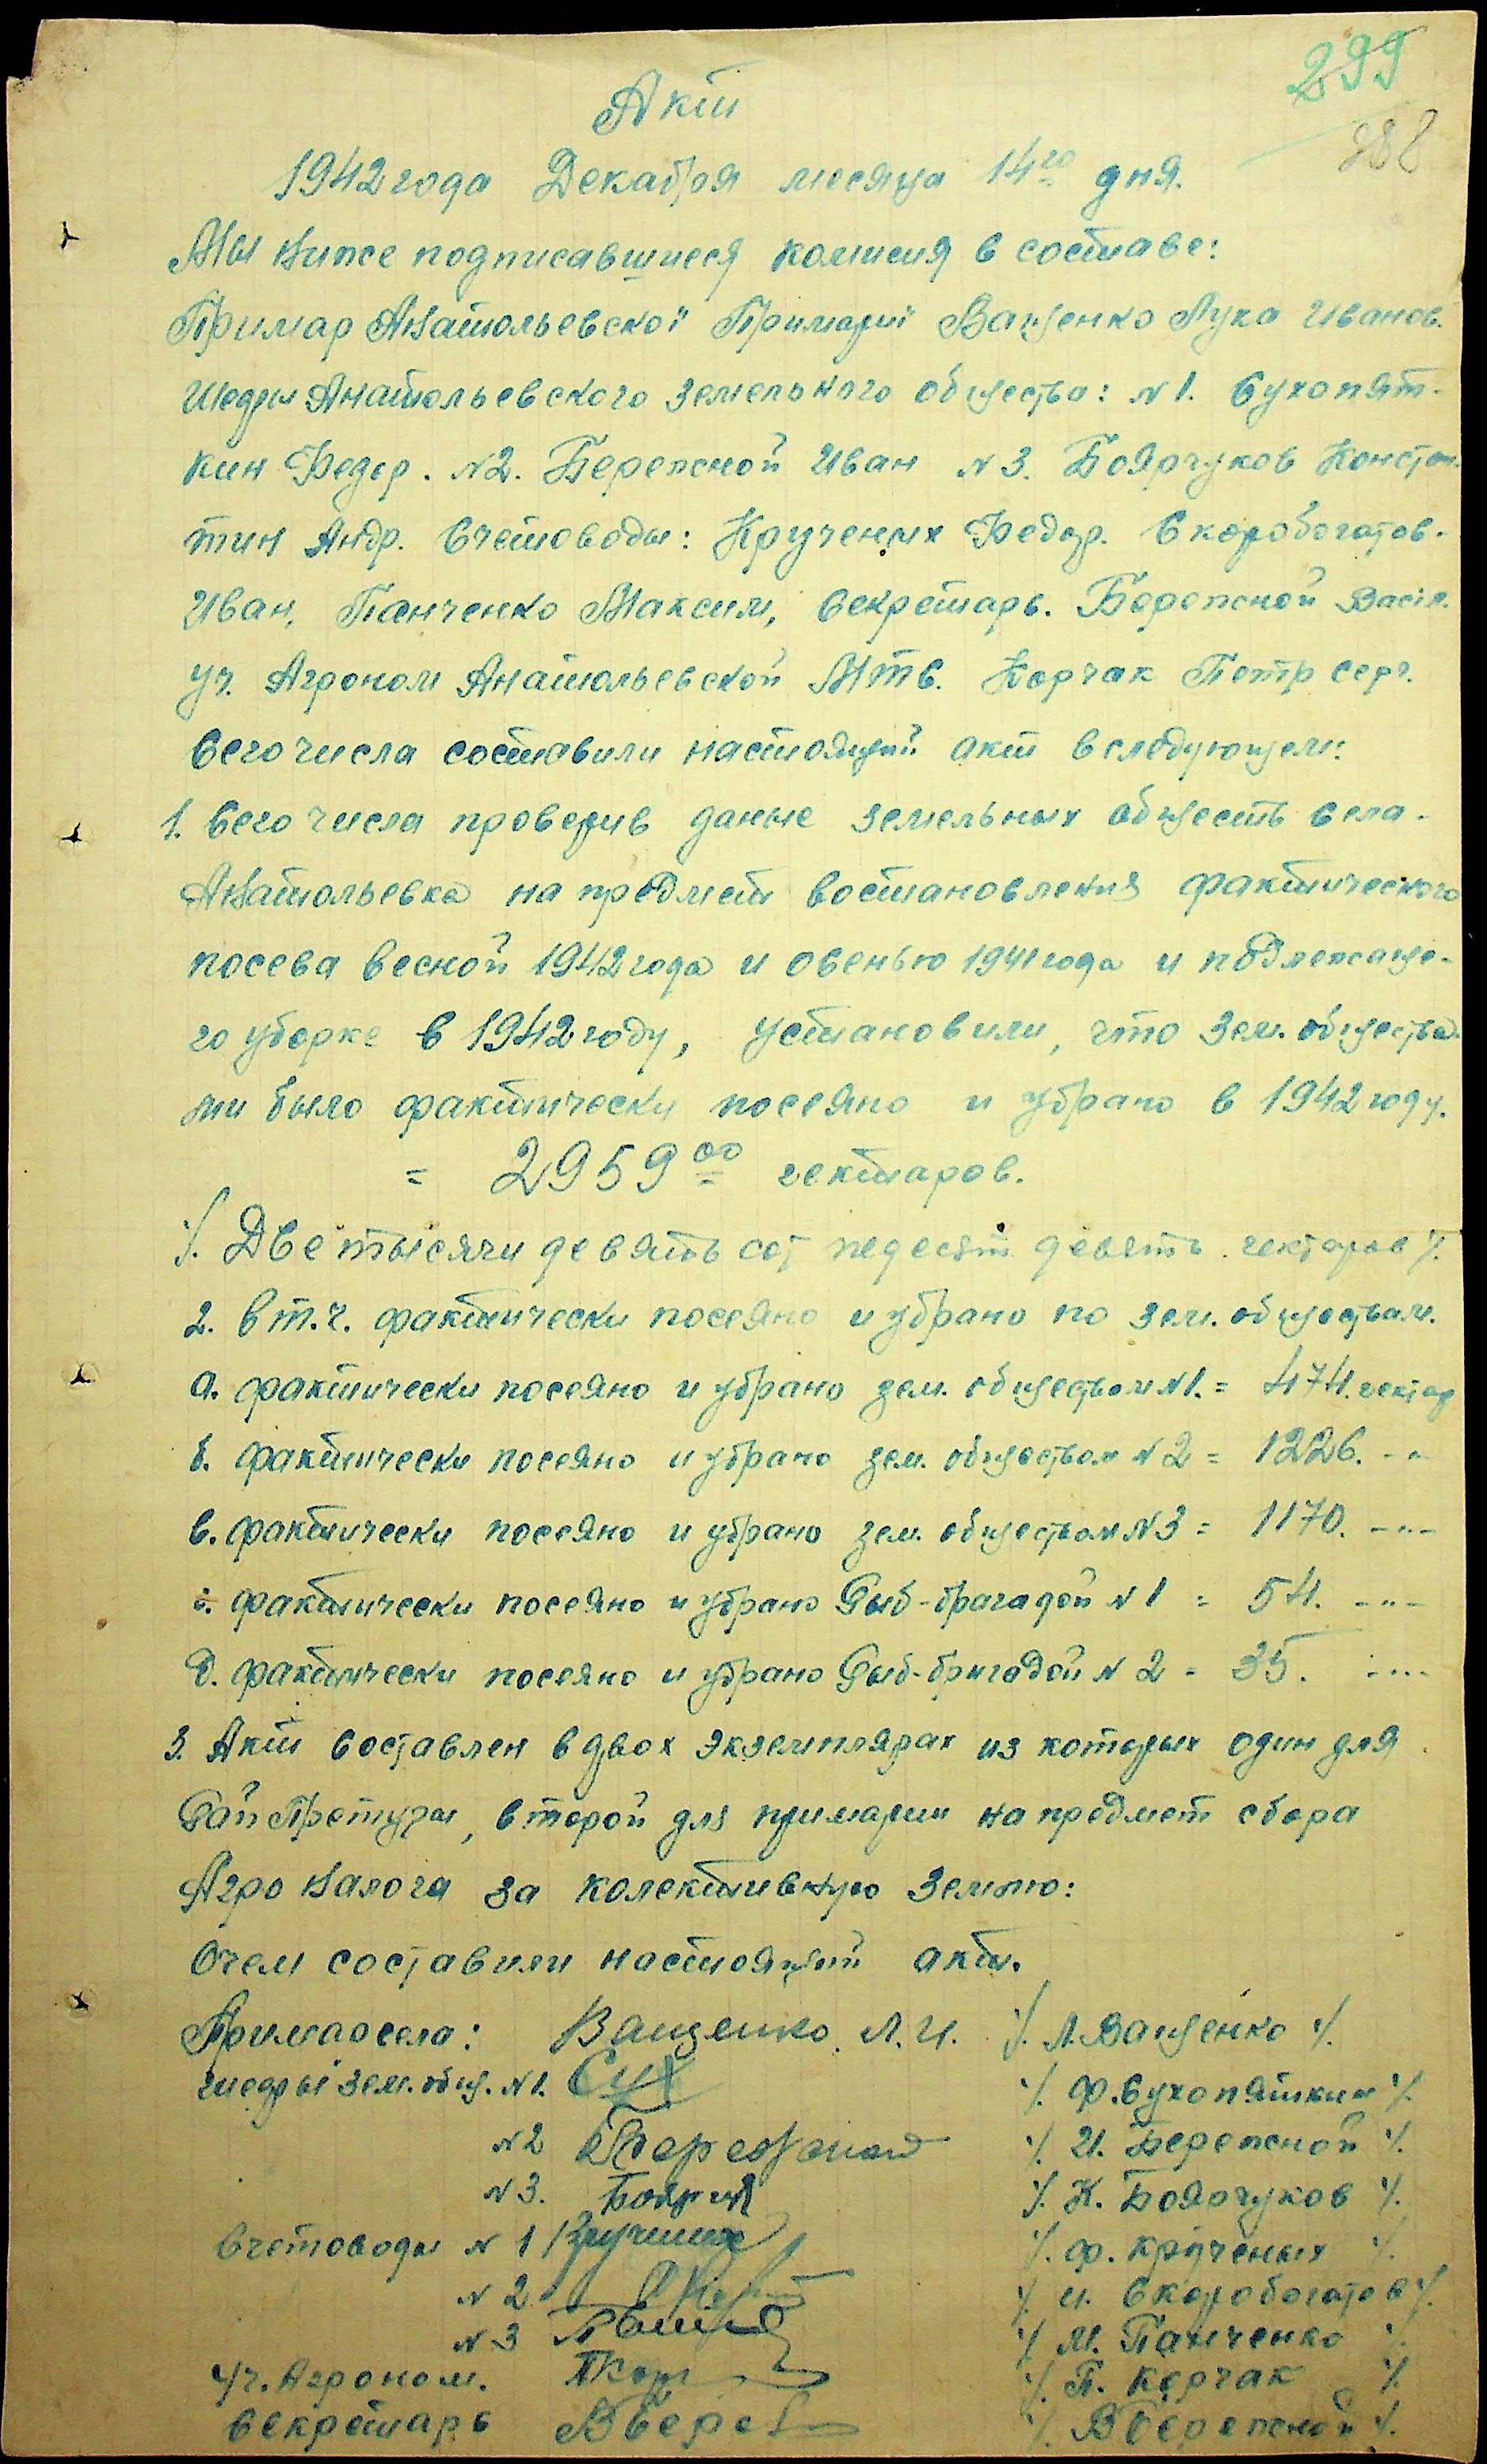 299
288
Акт
1942 года Декабря месяца 14го дня.
Мы ниже подписавшиеся комисия в составе:
Примар Анатольевской Примарії Ващенко Лука Иванов.
Шефы Анатольевского земельного общества: N 1. Сухопят-
кин Федор. N2. Бережной Иван N 3. Боярчуков Констан-
тин Андр. Счетоводы: Крученых Федор. Скоробогатов.
Иван, Панченко Максим, Секретарь. Бережной Васил.
Уч. Агроном Анатольевской МТС. Корчак Петр Серг.
Сего числа составили настоящий акт в следующем:
1. Сего числа проверив даные земельных обществ села.
Анатольевка на предмет востановления фактического
посева весной 1942 года и осенью 1941 года и подлежаще-
го уборке в 1942 году, установили, что зем. общества-
ми было фактически посеяно и убрано в 1942 году.
= 2959 00 гектаров.
/. Две тысячи девять сот педесят девять гектаров /.
2. в т.ч. фактически посеяно и убрано по зем. обществам.
а. фактически посеяно и убрано зем. обществом N1. = 474. гектар
б. фактически посеяно и убрано зем. обществом N 2 = 1226. -"-
в. фактически посеяно и убрано зем. обществом N 3 = 1170. -"-
г. фактически посеяно и убрано Рыб-брагадой N 1 = 54. -"-
д. фактически посеяно и убрано Рыб-бригадой N 2 = 35. -"-
3. Акт составлен в двох экземплярах из которых один для
Рай Претуры, второй для примарии на предмет сбора
Агро налога за колективную землю:
О чем составили настоящий акт.
Примар села: Ващенко Л.И. /. Л. Ващенко /.
шефы зем. общ. N1. Сух /. Ф. Сухопяткин /.
N 2 Бережной /. И. Бережной /.
N 3. Боярчук /. К. Боярчуков /.
Счетоводы N 1 Крученых /. Ф. Крученых /.
N 2 /. И. Скоробогатов /.
N 3 /. М. Панченко /.
Уч. Агроном. ПКор /. П. Корчак /.
Секретарь ВБереж /. В Бережной /.